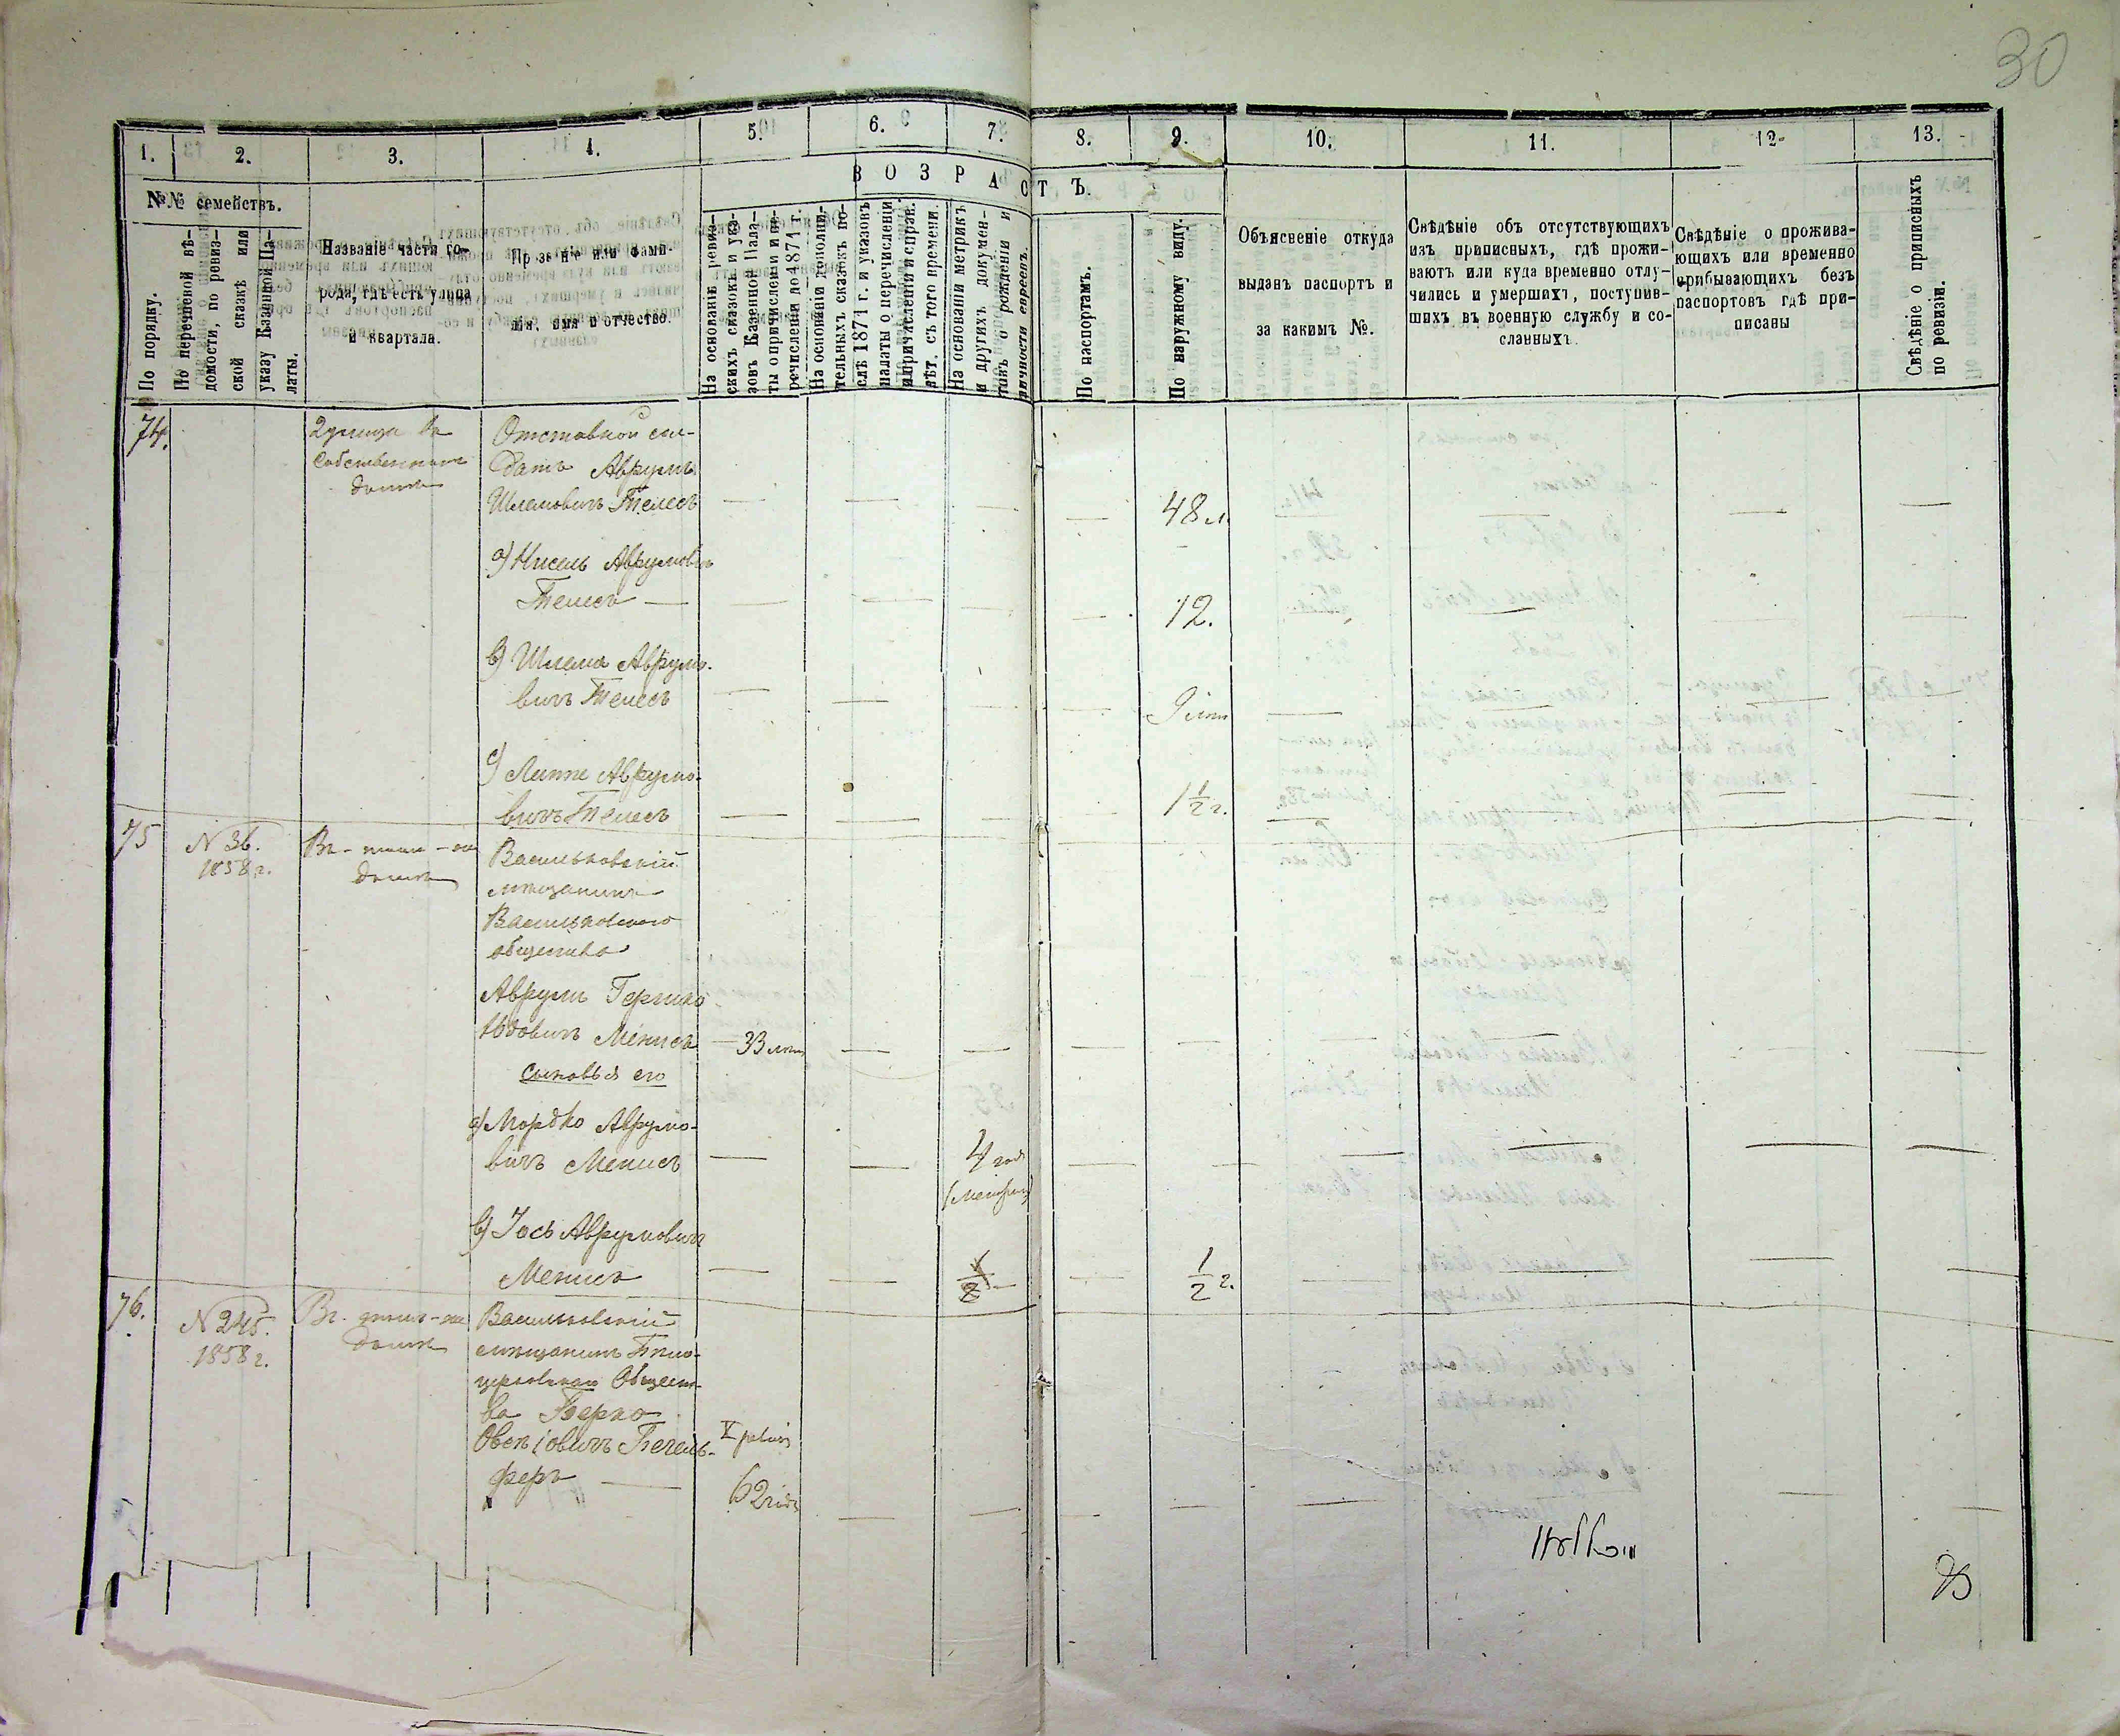 30
1. 2. 3. 4. 5. 6. 7. 8. 9. 10. 11. 12. 13.
№№ семействъ.
ВОЗРАСТЪ.
По порядку.
По перечневой вѣ-
домости, по ревиз-
ской сказкѣ или
указу Казенной Па-
латы.
Названіе части го-
рода, гдѣ есть улица
и квартала.
Прозвніе или фами-
лія, имя и отчество.
На основаніи ревиз-
скихъ сказокъ и ука-
зовъ Казенной Пала-
ты о причисленіи и пе-
речисленіи до 1871 г.
На основаніи дополни-
тельныхъ сказокъ по-
слѣ 1871 г. и указовъ
палаты о перечисленіи
и причисленіи и прав.
лѣт. съ того времени.
На основаніи метрикъ
и другихъ докумен-
товъ о рожденіи и
личности евреевъ.
По паспортамъ.
По наружному виду.
Объясненіе откуда
выданъ паспортъ и
за какимъ №.
Свѣдѣніе объ отсутствующихъ
изъ приписныхъ, гдѣ прожи-
ваютъ или куда временно отлу-
чились и умершихъ, поступив-
шихъ въ военную службу и со-
сланныхъ.
Свѣдѣніе о прожива-
ющихъ или временно
прибывающихъ безъ
паспортовъ гдѣ при-
писаны
Свѣдѣніе о приписныхъ
по ревизіи.
74.
2 улица въ
собственномъ
домѣ
Отставной сол-
датъ Аврумъ
Шлемовичъ Телесъ — — — — 48 л. — — —
а) Нисель Аврумовичъ
Телесъ — — — — — 12. — —
в) Шлема Аврумо-
вичъ Телесъ — — — 9 лѣтъ — — —
с) Липпе Аврумо-
вичъ Телесъ — — — — 1½ г. — — —
75
N 36.
1858 г.
домѣ
Васильковскій
мѣщанинъ
Васильковского
общества
Аврумъ Гершко
Юдовичъ Менисъ — 33 лѣтъ — — — — — — — —
сыновья его
а) Мордко Аврумо-
вичъ Менисъ — — 4 года — — — — — —
в) Іось Аврумовичъ
Менисъ — — ½ — — ½ г. — — — —
76.
N 245.
1858 г.
домѣ
Васильковскій
мѣщанинъ Бѣло-
церковскаго Общест-
ва Берко
V ревиз
феръ — 62 года — — — — — — —